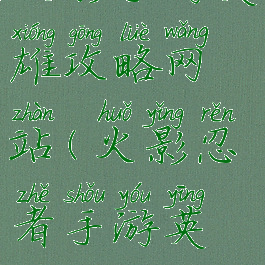 xióng gōng lüè wǎng
雄攻略网
zhàn huǒ yǐng rěn
站(火影忍
zhě shǒu yóu yīng
者手游英